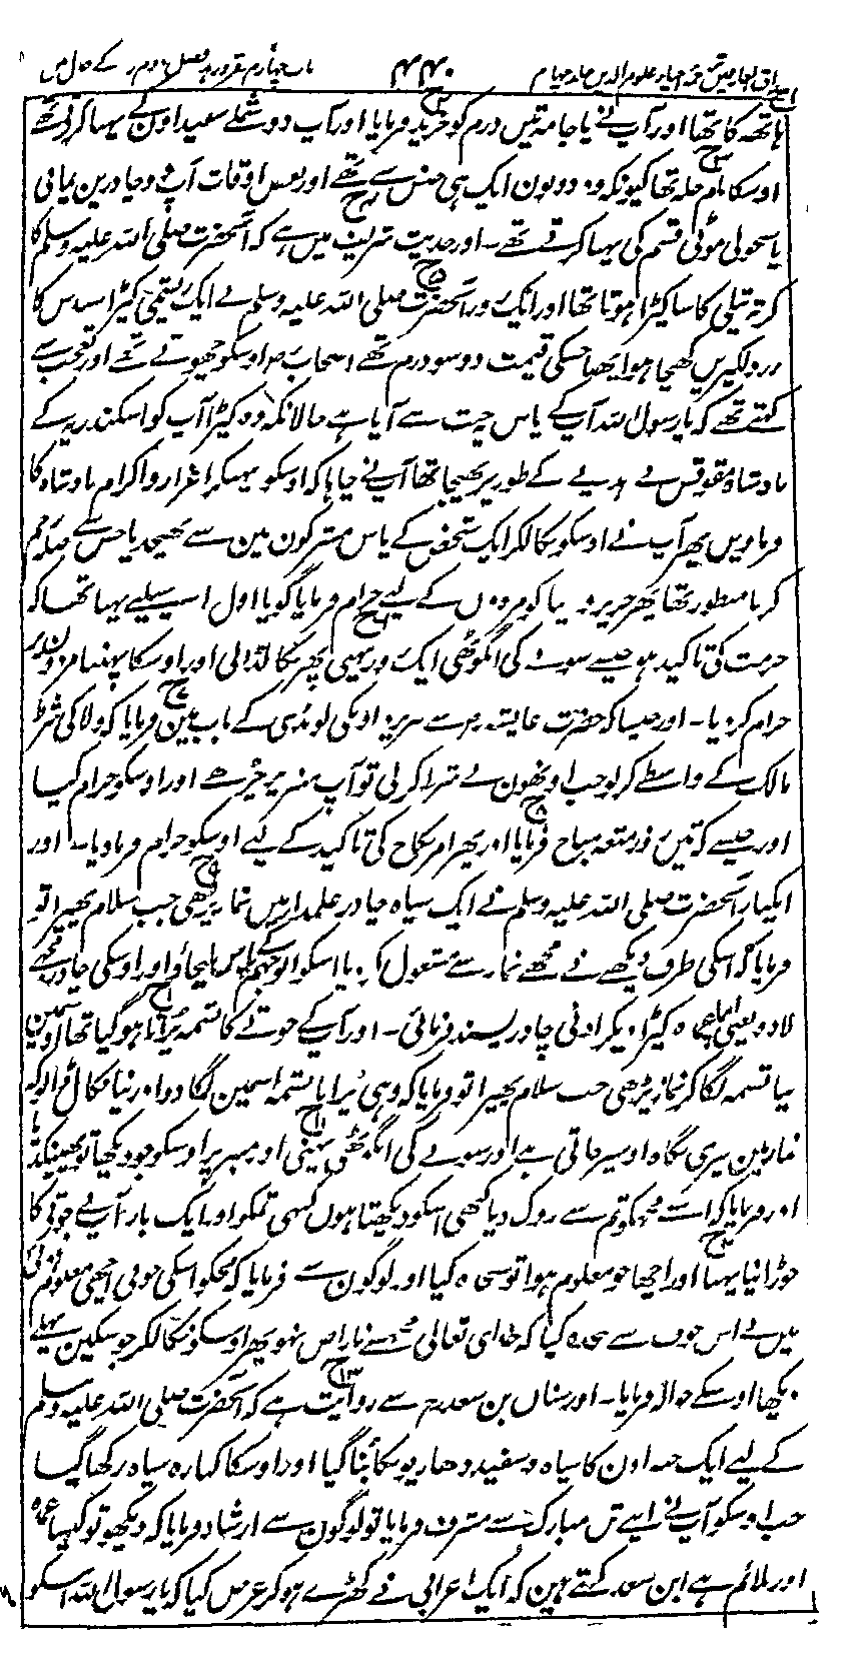 مذاق العارفین ترجمہ احیاء علوم الدین جلد چہارم ۴۴۰ باب چہارم فقر و زہد فصل دوم زہد کے حال میں
ہاتھ کا تھا اور آپ نے پاجامہ تین درم کو خرید فرمایا اور آپ دو شملے سعید اون کے پہنا کرتے تھے
اوسکا نام حلہ تھا کیونکہ وہ دونون ایک ہی جنس سے تھے اور بعض اوقات آپ دو چادرین یمانی
یا سحولی موٹی قسم کی پہنا کرتے تھے۔ اور حدیث شریف میں ہے کہ آنحضرت صلی اللہ علیہ وسلم کا
کرتہ تیلی کا سا کپڑا ہوتا تھا اور ایک روز آنحضرت صلی اللہ علیہ وسلم نے ایک ریشمی کپڑا سندس کا
زرد لکیریں کھچا ہوا پہنا جسکی قیمت دو سو درم تھے اصحاب رض اوسکو چھوتے تھے اور تعجب سے
کہتے تھے کہ یا رسول اللہ آپ کے پاس جنت سے آیا ہے حالانکہ وہ کپڑا آپ کو اسکندریہ کے
بادشاہ مقوقس نے ہدیے کے طور پر بھیجا تھا آپ نے چاہا کہ اوسکو پہنکر اعزاز و اکرام بادشاہ کا
فرماویں پھر آپ نے اوسکو نکالکر ایک شخص کے پاس مشرکون مین سے بھیجدیا جس سے صلہ رحم
کرنا منظور تھا پھر حریر و دیبا کو مردوں کے لیے حرام فرمایا گویا اول اسیلیے پہنا تھا کہ
حرمت کی تاکید ہو جیسے سونے کی انگوٹھی ایک روز پہنی پھر نکالڈالی اور اوسکا پہننا مردون پر
حرام کر دیا۔ اور جیسا کہ حضرت عایشہ رض سے بریرہ اونکی لونڈی کے باب مین فرمایا کہ ولا کی شرط
مالک کے واسطے کر لو جب اونھون نے شرط کر لی تو آپ منبر پر چڑھے اور اوسکو حرام کیا
اور جیسے کہ تین روز متعہ مباح فرمایا اور پھر امر نکاح کی تاکید کے لیے اوسکو حرام فرمادیا۔ اور
ایکبار آنحضرت صلی اللہ علیہ وسلم نے ایک سیاہ چادر علمدار میں نماز پڑھی جب سلام پھیرا تو
فرمایا کہ اسکی طرف دیکھنے نے مجھے نماز سے مشغول کر دیا اسکو ابوجہم کے پاس لیجاؤ اور اوسکی چادر مجھے
لادو یعنی اچھا کپڑا دیکر ادنی چادر پسند فرمائی۔ اور آپ کے جوتے کا تسمہ پرانا ہو گیا تھا اوسمین
نیا تسمہ لگا کر نماز پڑھی جب سلام پھیرا تو فرمایا کہ وہی پرانا تسمہ اسمین لگا دو اور نیا نکال ڈالو کہ
نماز مین میری نگاہ اوسپر جاتی ہے اور سونے کی انگوٹھی پہنی اور منبر پر اوسکو جو دیکھا تو پھینکدیا
اور فرمایا کہ اسنے مجھکو تم سے روک دیا کبھی اسکو دیکھتا ہوں کبھی تمکو اور ایک بار آپ نے جوتی کا
جوڑا نیا پہنا اور اچھا جو معلوم ہوا تو سجدہ کیا اور لوگون سے فرمایا کہ مجھکو اسکی خوبی اچھی معلوم ہوئی
میں نے اس خوف سے سجدہ کیا کہ خدای تعالی مجھسے ناراض نہو پھر اوسکو نکالکر جو مسکین پہلے
دیکھا اوسکے حوالہ فرمایا۔ اور سنان بن سعد رض سے روایت ہے کہ آنحضرت صلی اللہ علیہ وسلم
کے لیے ایک جبہ اون کا سیاہ و سفید دھاریوں کا بنا گیا اور اوسکا کنارہ سیاہ رکھا گیا
جب اوسکو آپ نے اپنے تن مبارک سے مشرف فرمایا تو لوگون سے ارشاد فرمایا کہ دیکھو تو کیسا عمدہ
اور ملائم ہے ابن سعد کہتے ہین کہ ایک اعرابی نے کھڑے ہو کر عرض کیا کہ یا رسول اللہ اسکو